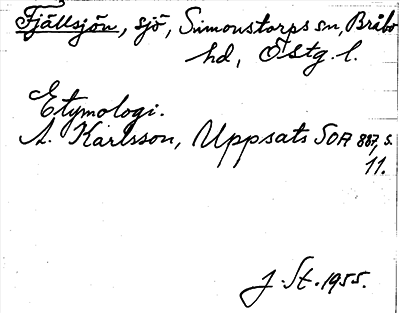 Fjällsjön, sjö, Simonstorps sn, Bråbo
hd, Östg. l.
Etymologi.
A. Karlsson, Uppsats SOA 887, s.
11.
J. St. 1955.